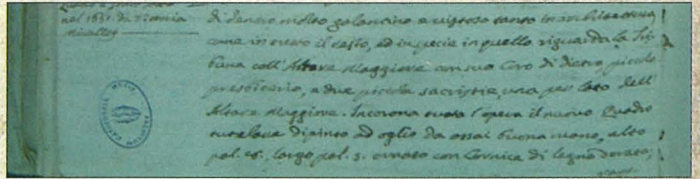 nel 1651. di
di dentro molto galantino e vistoso tanto in architettura
come in tutto il resto, ed in specie in quello riguarda la Tri-
buna coll'Altare Maggiore con suo Coro di dietro, piccolo
presbiterio, e due piccole sacristie, una per lato dell'
Altare Maggiore. Incorona tutta l'opera il nuovo Quadro
tutelare dipinto ad oglio da assai buona mano, alto
pal. largo pal. 3. ornato con Cornice di legno dorato;